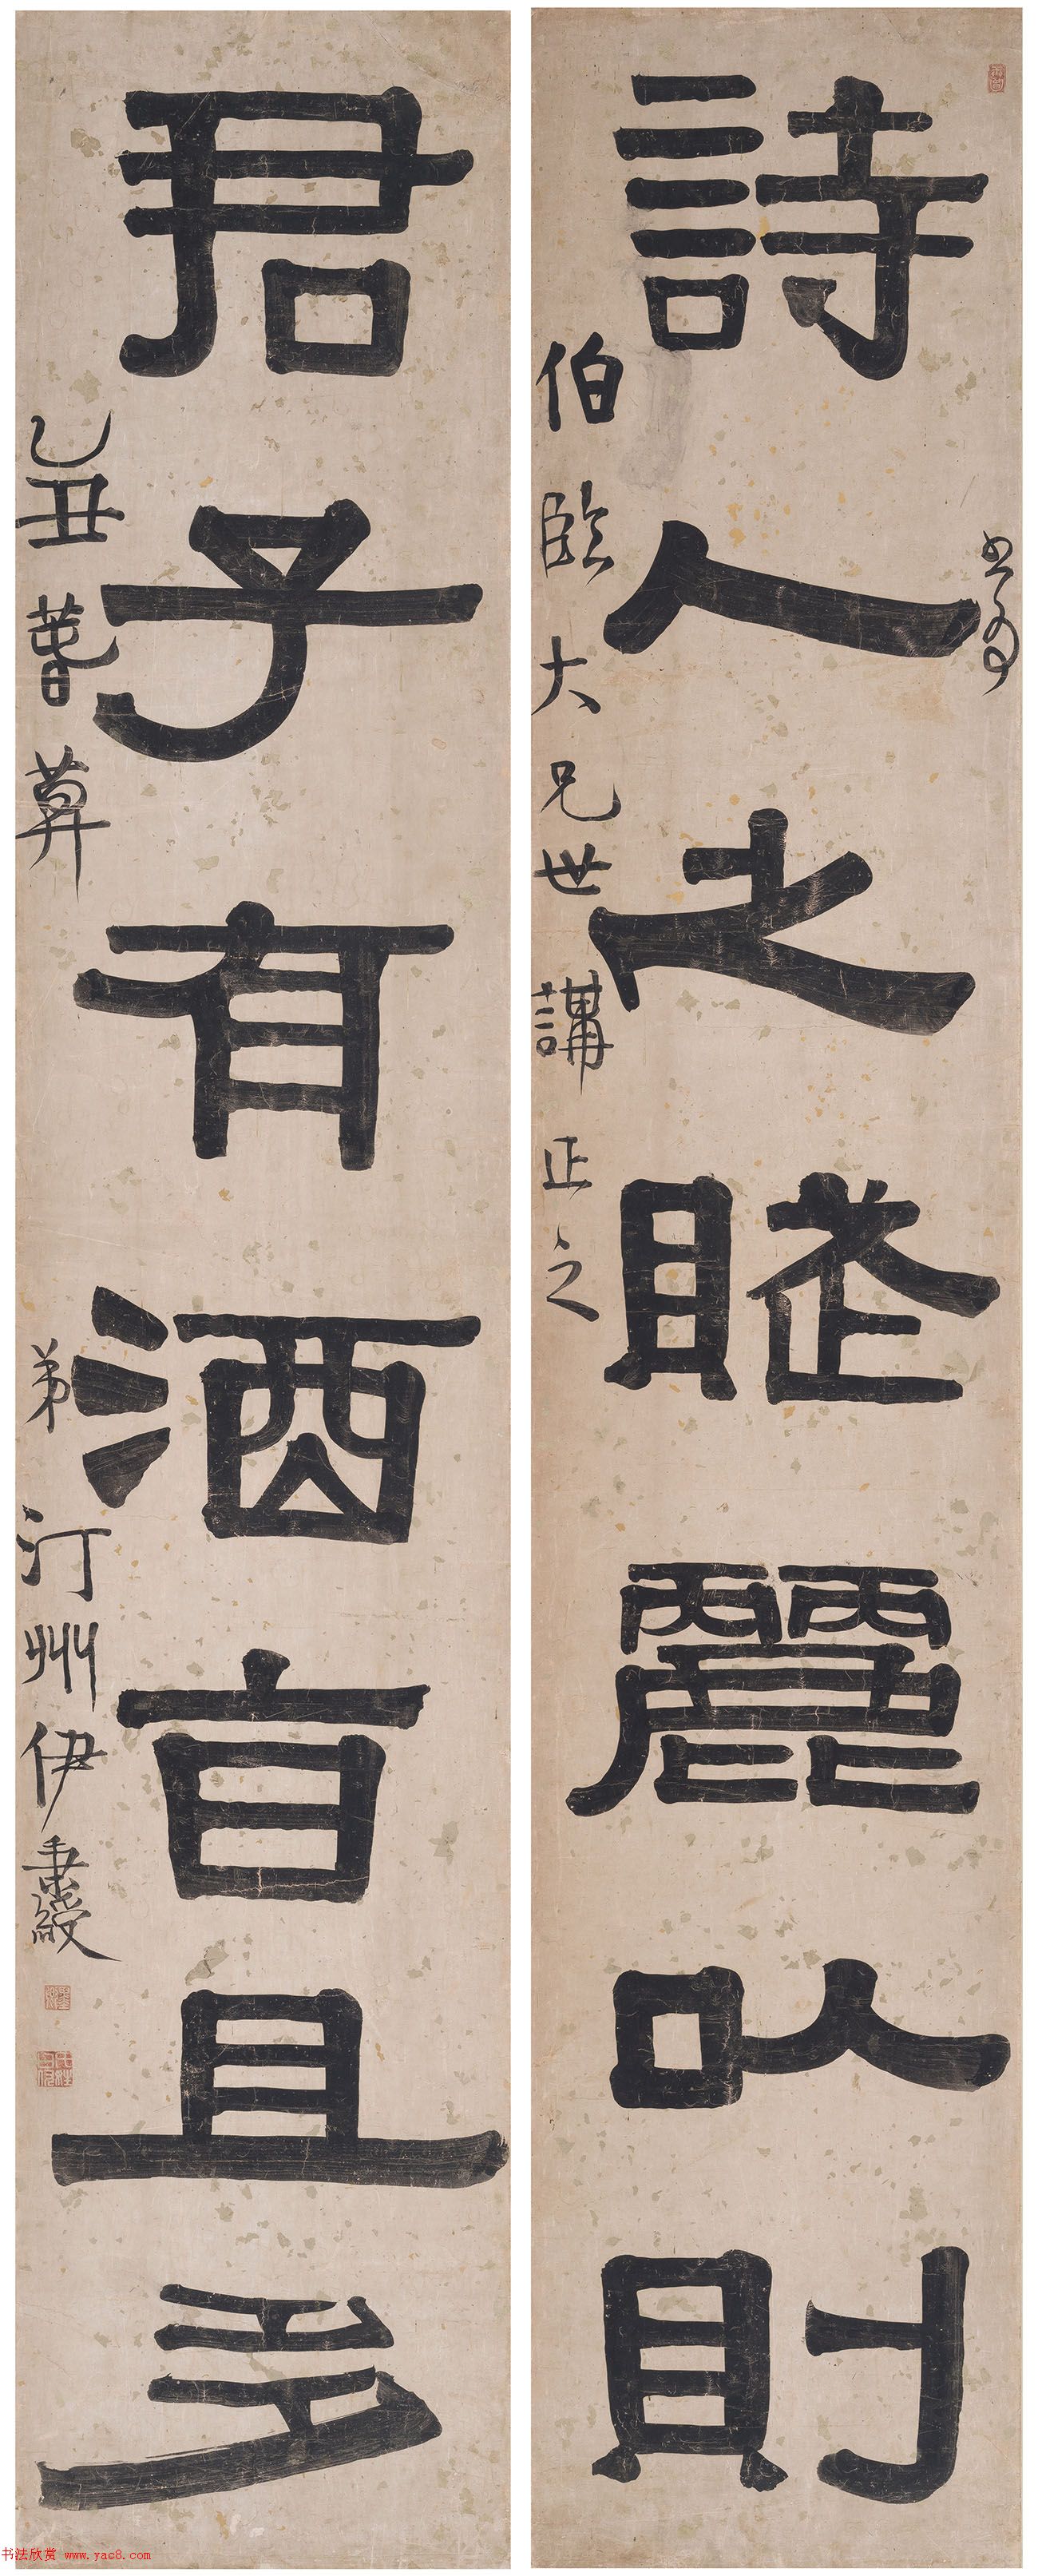 詩人之賦麗以則
書為
伯臨大兄世講正之
君子有酒旨且多
乙丑春莫
弟汀州伊秉綬
书法欣赏 www.yac8.com